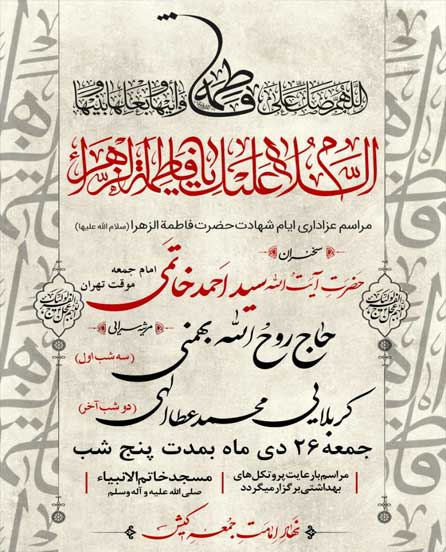 اللهم صل علی فاطمة و أبیها و بعلها و بنیها
السلام علیک یا فاطمة الزهراء
مراسم عزاداری ایام شهادت حضرت فاطمة الزهرا (سلام الله علیها)
سخنران
حضرت آیت الله سید احمد خاتمی
امام جمعه
موقت تهران
مرثیه سرایی
حاج روح الله بهمنی
(سه شب اول)
کربلایی محمد عطاالهی
(دو شب آخر)
جمعه ۲۶ دی ماه بمدت پنج شب
مراسم با رعایت پروتکل‌های
بهداشتی برگزار میگردد
مسجد خاتم الانبیاء
صلی الله علیه و آله وسلم
نهاد امامت جمعه کیش